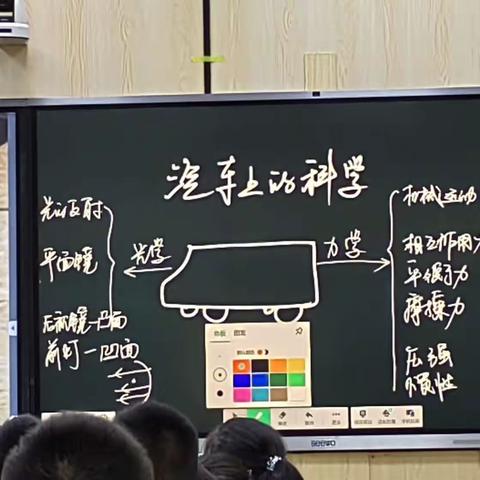 汽车上的科学
光的反射
平面镜
光学
后视镜—凸面
前灯—凹面
力学
机械运动
相互作用力
平衡力
摩擦力
压强
惯性
seewo